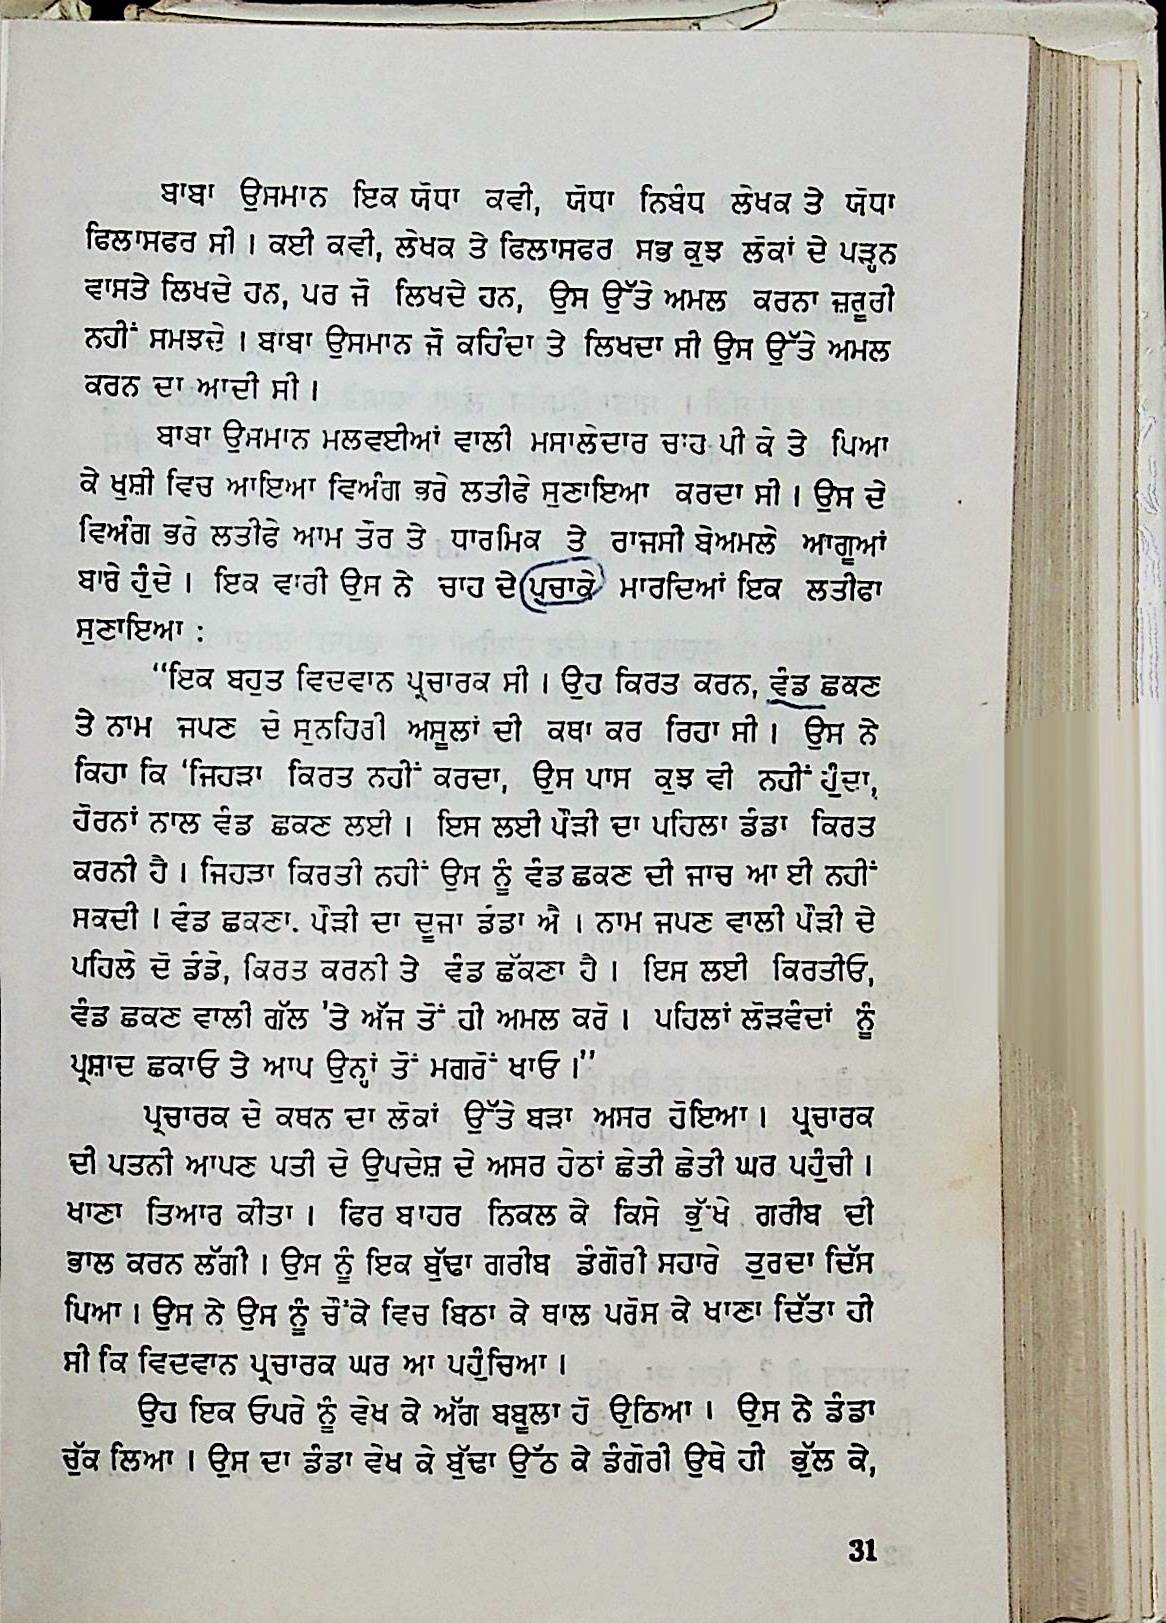 ਬਾਬਾ ਉਸਮਾਨ ਇਕ ਯੋਧਾ ਕਵੀ, ਯੋਧਾ ਨਿਬੰਧ ਲੇਖਕ ਤੇ ਯੋਧਾ
ਫਿਲਾਸਫਰ ਸੀ । ਕਈ ਕਵੀ, ਲੇਖਕ ਤੇ ਫਿਲਾਸਫਰ ਸਭ ਕੁਝ ਲੋਕਾਂ ਦੇ ਪੜ੍ਹਨ
ਵਾਸਤੇ ਲਿਖਦੇ ਹਨ, ਪਰ ਜੋ ਲਿਖਦੇ ਹਨ, ਉਸ ਉੱਤੇ ਅਮਲ ਕਰਨਾ ਜ਼ਰੂਰੀ
ਨਹੀਂ ਸਮਝਦੇ । ਬਾਬਾ ਉਸਮਾਨ ਜੋ ਕਹਿੰਦਾ ਤੇ ਲਿਖਦਾ ਸੀ ਉਸ ਉੱਤੇ ਅਮਲ
ਕਰਨ ਦਾ ਆਦੀ ਸੀ ।
ਬਾਬਾ ਉਸਮਾਨ ਮਲਵਈਆਂ ਵਾਲੀ ਮਸਾਲੇਦਾਰ ਚਾਹ ਪੀ ਕੇ ਤੇ ਪਿਆ
ਕੇ ਖੁਸ਼ੀ ਵਿਚ ਆਇਆ ਵਿਅੰਗ ਭਰੇ ਲਤੀਫੇ ਸੁਣਾਇਆ ਕਰਦਾ ਸੀ । ਉਸ ਦੇ
ਵਿਅੰਗ ਭਰੇ ਲਤੀਫੇ ਆਮ ਤੌਰ ਤੇ ਧਾਰਮਿਕ ਤੇ ਰਾਜਸੀ ਬੇਅਮਲੇ ਆਗੂਆਂ
ਬਾਰੇ ਹੁੰਦੇ । ਇਕ ਵਾਰੀ ਉਸ ਨੇ ਚਾਹ ਦੇ ਪੁਚਾਕੇ ਮਾਰਦਿਆਂ ਇਕ ਲਤੀਫਾ
ਸੁਣਾਇਆ :
“ਇਕ ਬਹੁਤ ਵਿਦਵਾਨ ਪ੍ਰਚਾਰਕ ਸੀ । ਉਹ ਕਿਰਤ ਕਰਨ, ਵੰਡ ਛਕਣ
ਤੇ ਨਾਮ ਜਪਣ ਦੇ ਸੁਨਹਿਰੀ ਅਸੂਲਾਂ ਦੀ ਕਥਾ ਕਰ ਰਿਹਾ ਸੀ । ਉਸ ਨੇ
ਕਿਹਾ ਕਿ ‘ਜਿਹੜਾ ਕਿਰਤ ਨਹੀਂ ਕਰਦਾ, ਉਸ ਪਾਸ ਕੁਝ ਵੀ ਨਹੀਂ ਹੁੰਦਾ,
ਹੋਰਨਾਂ ਨਾਲ ਵੰਡ ਛਕਣ ਲਈ । ਇਸ ਲਈ ਪੌੜੀ ਦਾ ਪਹਿਲਾ ਡੰਡਾ ਕਿਰਤ
ਕਰਨੀ ਹੈ । ਜਿਹੜਾ ਕਿਰਤੀ ਨਹੀਂ ਉਸ ਨੂੰ ਵੰਡ ਛਕਣ ਦੀ ਜਾਚ ਆ ਈ ਨਹੀਂ
ਸਕਦੀ । ਵੰਡ ਛਕਣਾ. ਪੌੜੀ ਦਾ ਦੂਜਾ ਡੰਡਾ ਐ । ਨਾਮ ਜਪਣ ਵਾਲੀ ਪੌੜੀ ਦੇ
ਪਹਿਲੇ ਦੋ ਡੰਡੇ, ਕਿਰਤ ਕਰਨੀ ਤੇ ਵੰਡ ਛੱਕਣਾ ਹੈ । ਇਸ ਲਈ ਕਿਰਤੀਓ,
ਵੰਡ ਛਕਣ ਵਾਲੀ ਗੱਲ ’ਤੇ ਅੱਜ ਤੋਂ ਹੀ ਅਮਲ ਕਰੋ । ਪਹਿਲਾਂ ਲੋੜਵੰਦਾਂ ਨੂੰ
ਪ੍ਰਸ਼ਾਦ ਛਕਾਓ ਤੇ ਆਪ ਉਨ੍ਹਾਂ ਤੋਂ ਮਗਰੋਂ ਖਾਓ ।”
ਪ੍ਰਚਾਰਕ ਦੇ ਕਥਨ ਦਾ ਲੋਕਾਂ ਉੱਤੇ ਬੜਾ ਅਸਰ ਹੋਇਆ । ਪ੍ਰਚਾਰਕ
ਦੀ ਪਤਨੀ ਆਪਣ ਪਤੀ ਦੇ ਉਪਦੇਸ਼ ਦੇ ਅਸਰ ਹੇਠਾਂ ਛੇਤੀ ਛੇਤੀ ਘਰ ਪਹੁੰਚੀ ।
ਖਾਣਾ ਤਿਆਰ ਕੀਤਾ । ਫਿਰ ਬਾਹਰ ਨਿਕਲ ਕੇ ਕਿਸੇ ਭੁੱਖੇ ਗਰੀਬ ਦੀ
ਭਾਲ ਕਰਨ ਲੱਗੀ । ਉਸ ਨੂੰ ਇਕ ਬੁੱਢਾ ਗਰੀਬ ਡੰਗੋਰੀ ਸਹਾਰੇ ਤੁਰਦਾ ਦਿੱਸ
ਪਿਆ । ਉਸ ਨੇ ਉਸ ਨੂੰ ਚੌਂਕੇ ਵਿਚ ਬਿਠਾ ਕੇ ਥਾਲ ਪਰੋਸ ਕੇ ਖਾਣਾ ਦਿੱਤਾ ਹੀ
ਸੀ ਕਿ ਵਿਦਵਾਨ ਪ੍ਰਚਾਰਕ ਘਰ ਆ ਪਹੁੰਚਿਆ ।
ਉਹ ਇਕ ਓਪਰੇ ਨੂੰ ਵੇਖ ਕੇ ਅੱਗ ਬਬੂਲਾ ਹੋ ਉਠਿਆ । ਉਸ ਨੇ ਡੰਡਾ
ਚੁੱਕ ਲਿਆ । ਉਸ ਦਾ ਡੰਡਾ ਵੇਖ ਕੇ ਬੁੱਢਾ ਉੱਠ ਕੇ ਡੰਗੋਰੀ ਉਥੇ ਹੀ ਭੁੱਲ ਕੇ,
31